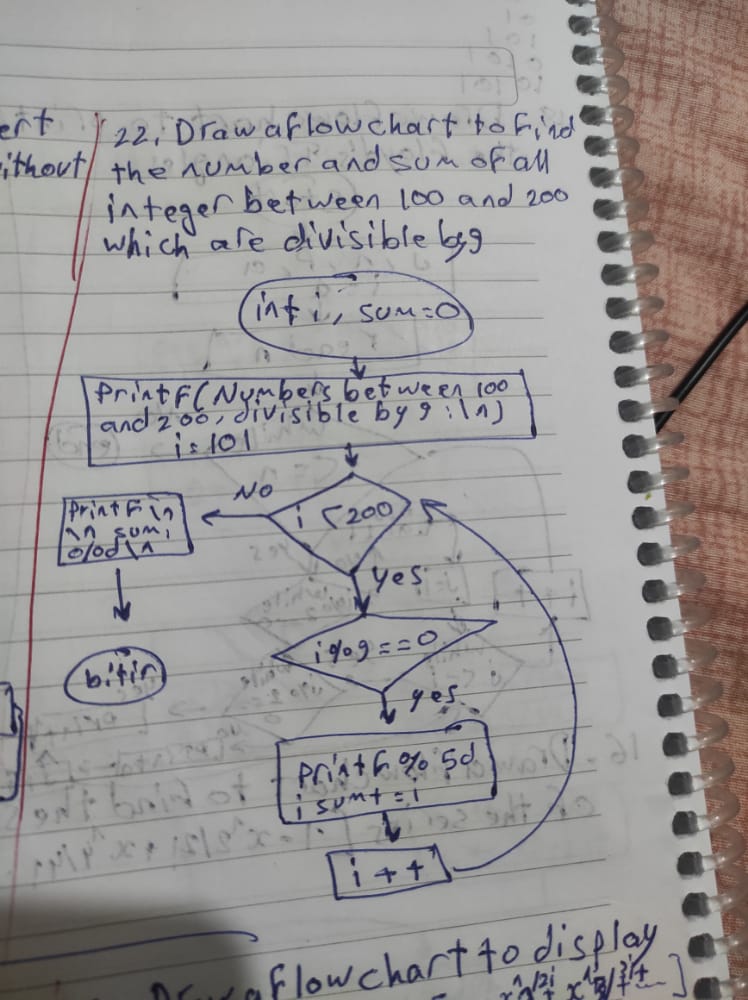 ert
ithout
22, Draw a flow chart to Find
the number and sum of all
integer between 100 and 200
which are divisible by 9
int i, sum=0
PrintF( Numbers between 100
and 200, divisible by 9 : \n)
i = 101
i < 200
No
PrintF \n
\n sum:
%d \n
bitir
yes
i % 9 == 0
yes
PrintF % 5d
i sum + = i
i + +
Draw a flow chart to display